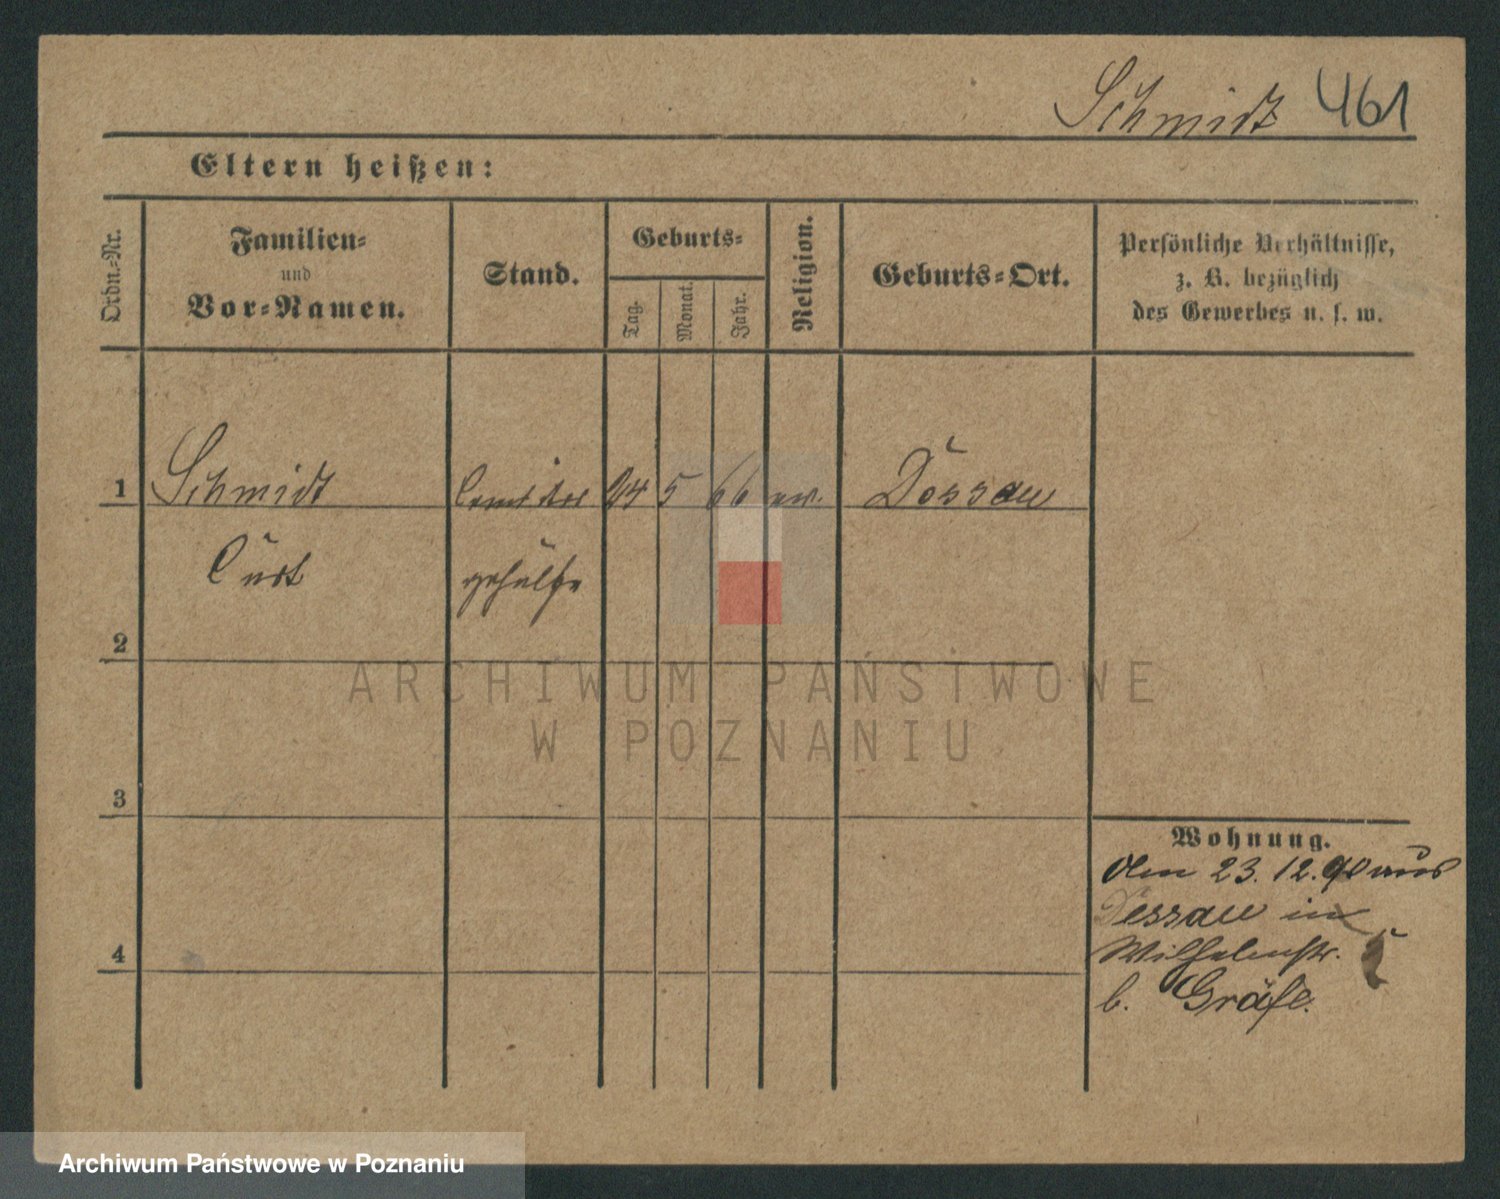 Schmidt 461
Eltern heißen:
Ordn.-Nr.
Familien-
und
Vor-Namen.
Stand.
Geburts-
Tag.
Monat.
Jahr.
Religion.
Geburts-Ort.
Persönliche Verhältnisse,
z. B. bezüglich
des Gewerbes u. s. w.
1 Schmidt 24 5 66 ev. Dessau
Curt gehülfe
2
3
4
Wohnung.
den 23. 12. 90 aus
Dessau in
Wilhelmstr. 5
b. Gräfe.
ARCHIWUM PAŃSTWOWE
W POZNANIU
Archiwum Państwowe w Poznaniu